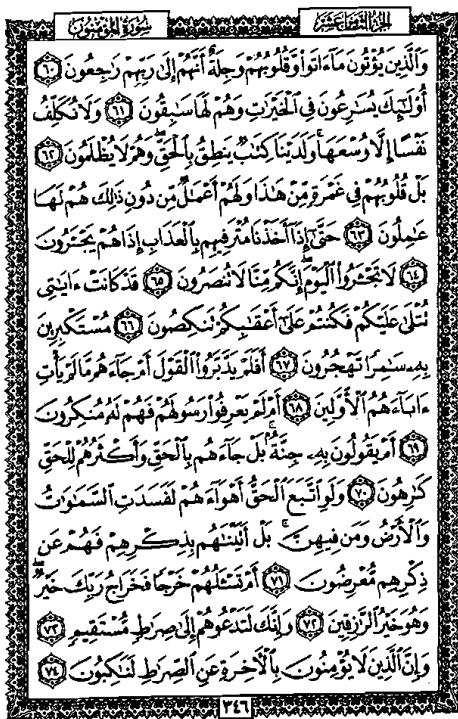 الجزء الثامن عشر سورة المؤمنون
وَالَّذِينَ يُؤْتُونَ مَآ ءَاتَوا۟ وَّقُلُوبُهُمْ وَجِلَةٌ أَنَّهُمْ إِلَىٰ رَبِّهِمْ رَٰجِعُونَ ٦٠
أُو۟لَٰٓئِكَ يُسَٰرِعُونَ فِى ٱلْخَيْرَٰتِ وَهُمْ لَهَا سَٰبِقُونَ ٦١ وَلَا نُكَلِّفُ
نَفْسًا إِلَّا وُسْعَهَا ۖ وَلَدَيْنَا كِتَٰبٌ يَنطِقُ بِٱلْحَقِّ ۚ وَهُمْ لَا يُظْلَمُونَ ٦٢
بَلْ قُلُوبُهُمْ فِى غَمْرَةٍ مِّنْ هَٰذَا وَلَهُمْ أَعْمَٰلٌ مِّن دُونِ ذَٰلِكَ هُمْ لَهَا
عَٰمِلُونَ ٦٣ حَتَّىٰٓ إِذَآ أَخَذْنَا مُتْرَفِيهِم بِٱلْعَذَابِ إِذَا هُمْ يَجْـَٔرُونَ
٦٤ لَا تَجْـَٔرُوا۟ ٱلْيَوْمَ ۖ إِنَّكُم مِّنَّا لَا تُنصَرُونَ ٦٥ قَدْ كَانَتْ ءَايَٰتِى
تُتْلَىٰ عَلَيْكُمْ فَكُنتُمْ عَلَىٰٓ أَعْقَٰبِكُمْ تَنكِصُونَ ٦٦ مُسْتَكْبِرِينَ
بِهِۦ سَٰمِرًا تَهْجُرُونَ ٦٧ أَفَلَمْ يَدَّبَّرُوا۟ ٱلْقَوْلَ أَمْ جَآءَهُم مَّا لَمْ يَأْتِ
ءَابَآءَهُمُ ٱلْأَوَّلِينَ ٦٨ أَمْ لَمْ يَعْرِفُوا۟ رَسُولَهُمْ فَهُمْ لَهُۥ مُنكِرُونَ
٦٩ أَمْ يَقُولُونَ بِهِۦ جِنَّةٌۢ ۚ بَلْ جَآءَهُم بِٱلْحَقِّ وَأَكْثَرُهُمْ لِلْحَقِّ
كَٰرِهُونَ ٧٠ وَلَوِ ٱتَّبَعَ ٱلْحَقُّ أَهْوَآءَهُمْ لَفَسَدَتِ ٱلسَّمَٰوَٰتُ
وَٱلْأَرْضُ وَمَن فِيهِنَّ ۚ بَلْ أَتَيْنَٰهُم بِذِكْرِهِمْ فَهُمْ عَن
ذِكْرِهِم مُّعْرِضُونَ ٧١ أَمْ تَسْـَٔلُهُمْ خَرْجًا فَخَرَاجُ رَبِّكَ خَيْرٌ ۖ
وَهُوَ خَيْرُ ٱلرَّٰزِقِينَ ٧٢ وَإِنَّكَ لَتَدْعُوهُمْ إِلَىٰ صِرَٰطٍ مُّسْتَقِيمٍ ٧٣
وَإِنَّ ٱلَّذِينَ لَا يُؤْمِنُونَ بِٱلْءَاخِرَةِ عَنِ ٱلصِّرَٰطِ لَنَٰكِبُونَ ٧٤
٣٤٦